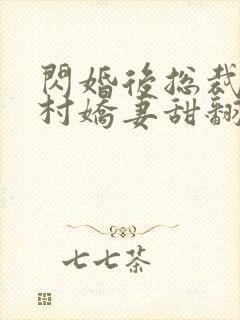 閃婚後總裁
村嬌妻甜翻
七七茶